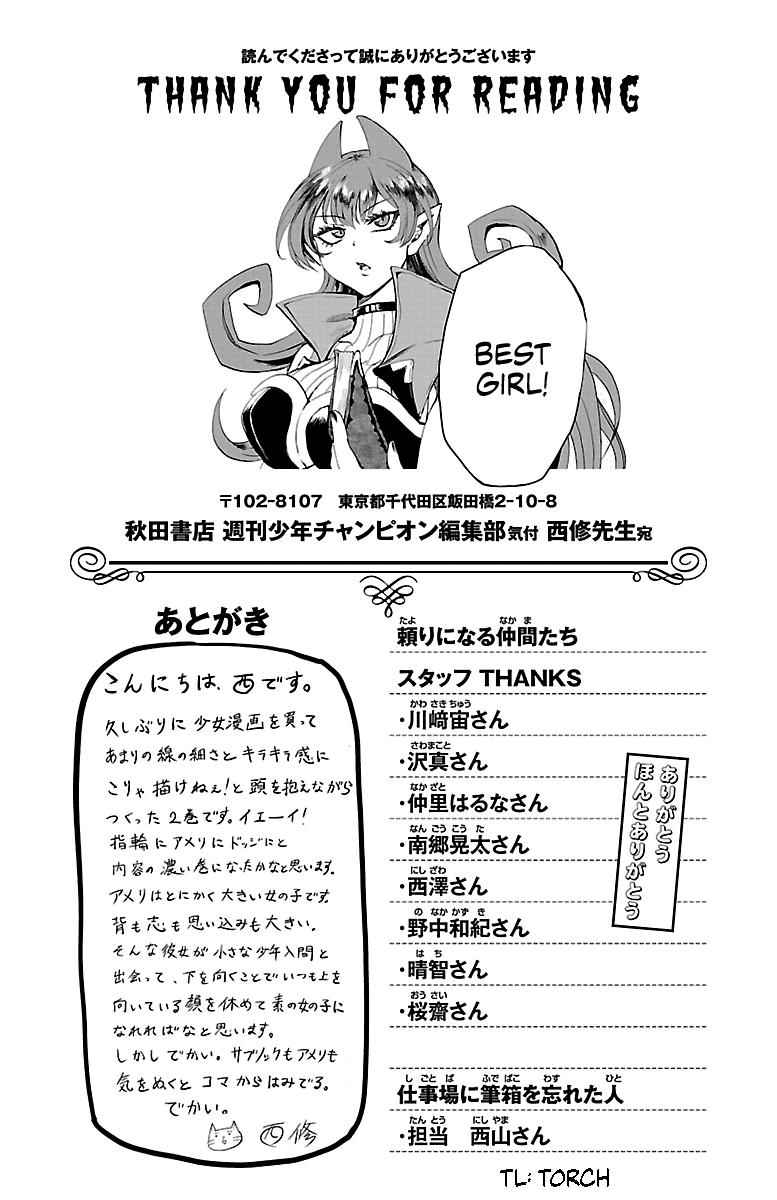 読んでくださって誠にありがとうございます
THANK YOU FOR READING
BEST
GIRL!
〒102-8107　東京都千代田区飯田橋2-10-8
秋田書店 週刊少年チャンピオン編集部気付 西修先生宛
あとがき
こんにちは、西です。
久しぶりに 少女漫画を買って
あまりの線の細さと キラキラ感に
こりゃ描けねぇ!と 頭を抱えながら
つくった 2巻です。イエーイ!
指輪に アメリに ドッジにと
内容の濃い巻になったかなと思います。
アメリはとにかく 大きい女の子です。
背も志も思い込みも大きい。
そんな彼女が 小さな少年入間と
出会って、下を向くことで いつも上を
向いている 顔を休めて 素の女の子に
なれればなと思います。
しかし でかい。サブノックもアメリも
気をぬくと コマからはみでる。
でかい。
西 修
頼りになる仲間たち
たよ なかま
スタッフ THANKS
・川﨑宙さん
かわさきちゅう
・沢真さん
さわまこと
・仲里はるなさん
なかざと
・南郷晃太さん
なんごうこうた
・西澤さん
にしざわ
・野中和紀さん
のなかかずき
・晴智さん
はち
・桜齋さん
おうさい
ありがとう
ほんとありがとう
仕事場に筆箱を忘れた人
しごとば ふでばこ わす ひと
・担当　西山さん
たんとう にしやま
TL: TORCH